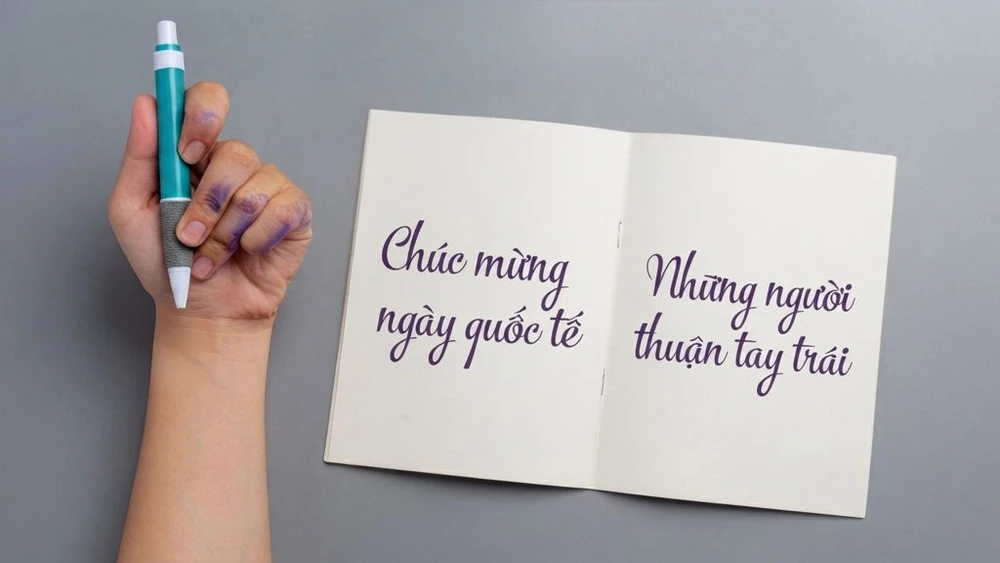 Chúc mừng
ngày quốc tế
Những người
thuận tay trái